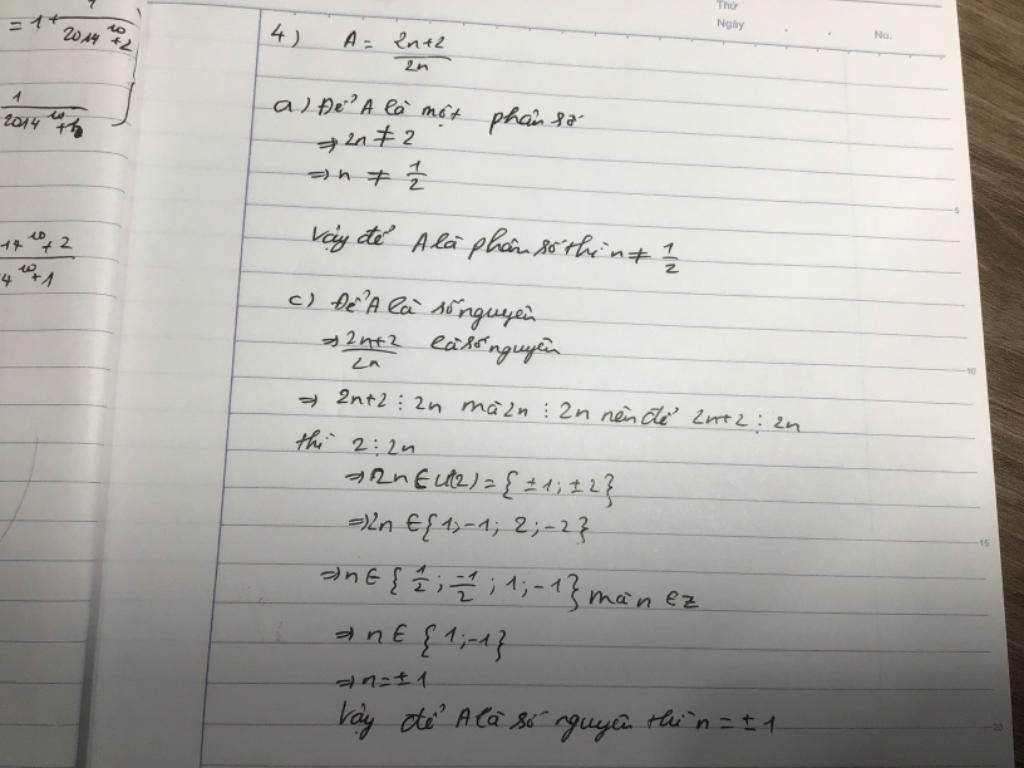 = 1 + 1/(2014^10 + 2)
1/(2014^10 +
14^10 + 2
4^10 + 1
Thứ
Ngày
No.
4) A = (2n+2)/(2n)
a) Để A là một phân số
⇒ 2n ≠ 2
⇒ n ≠ 1/2
Vậy để A là phân số thì n ≠ 1/2
c) Để A là số nguyên
⇒ (2n+2)/(2n) là số nguyên
⇒ 2n+2 ⋮ 2n mà 2n ⋮ 2n nên để 2n+2 ⋮ 2n
thì 2 ⋮ 2n
⇒ 2n ∈ Ư(2) = { ±1; ±2 }
⇒ 2n ∈ { 1; -1; 2; -2 }
⇒ n ∈ { 1/2; -1/2; 1; -1 } mà n ∈ Z
⇒ n ∈ { 1; -1 }
⇒ n = ± 1
Vậy để A là số nguyên thì n = ± 1
5
10
15
20